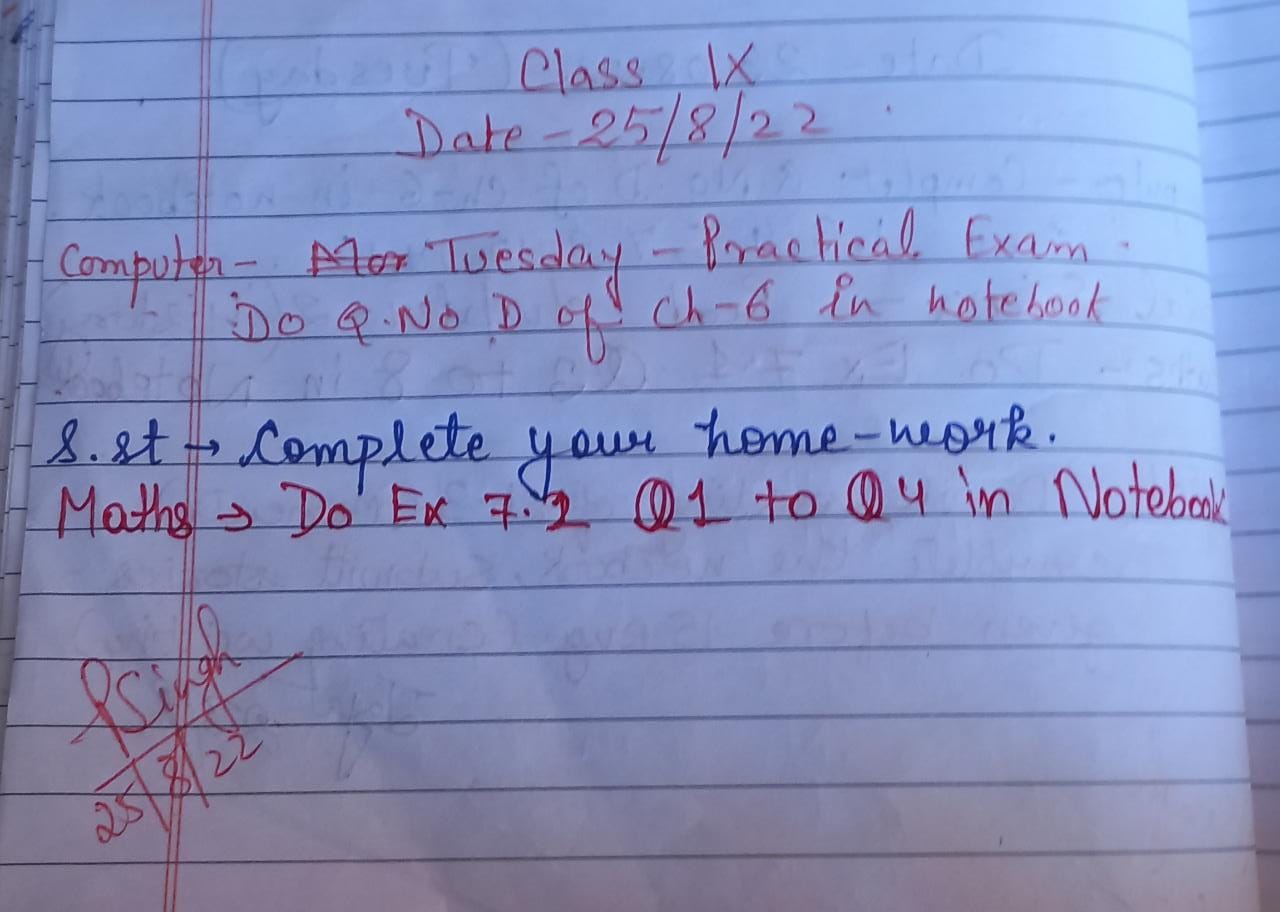 Class IX
Date - 25/8/22
Computer - Tuesday - Practical Exam.
Do Q.No D of Ch-6 in notebook
S.st → Complete your home-work.
Maths → Do Ex 7.2 Q1 to Q4 in Notebook
PSingh
25/8/22